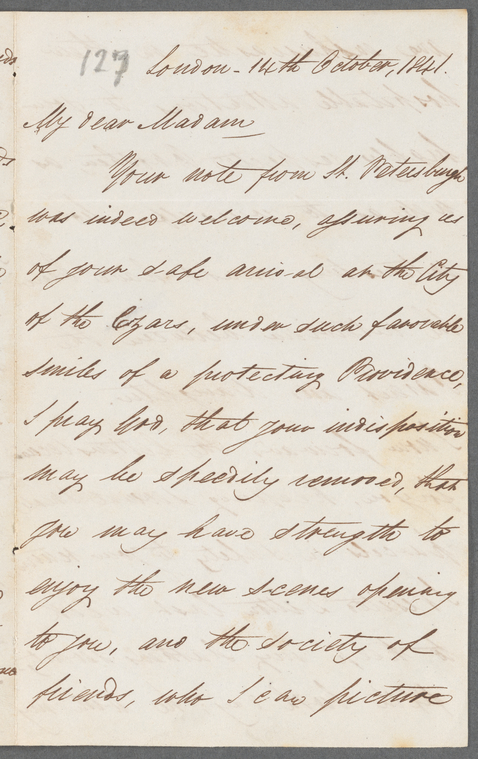 127 London - 14th October, 1841.
My dear Madam
Your note from St. Petersburgh
was indeed welcome, assuring us
of your safe arrival at the City
of the Czars, under such favorable
smiles of a protecting Providence,
I pray God, that your indisposition
may be speedily removed, that
you may have strength to
enjoy the new scenes opening
to you, and the society of
friends, who I can picture